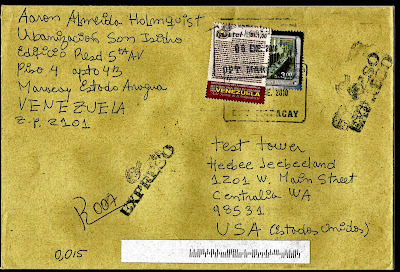 Aaron Almeida Holmquist
Urbanización San Isidro
Edificio Resd 5ta AV
Piso 4 apto 4B
Maracay Estado Aragua
VENEZUELA
Z.P. 2101
06 DIC. 2010
OPT MARACAY
VENEZUELA
2010
MARACAY
EXPRESO
EXPRESO
R007
EXPRESO
test tower
Heebee Jeebeeland
1201 W. Main Street
Centralia WA
98531
USA (Estados Unidos)
0,015